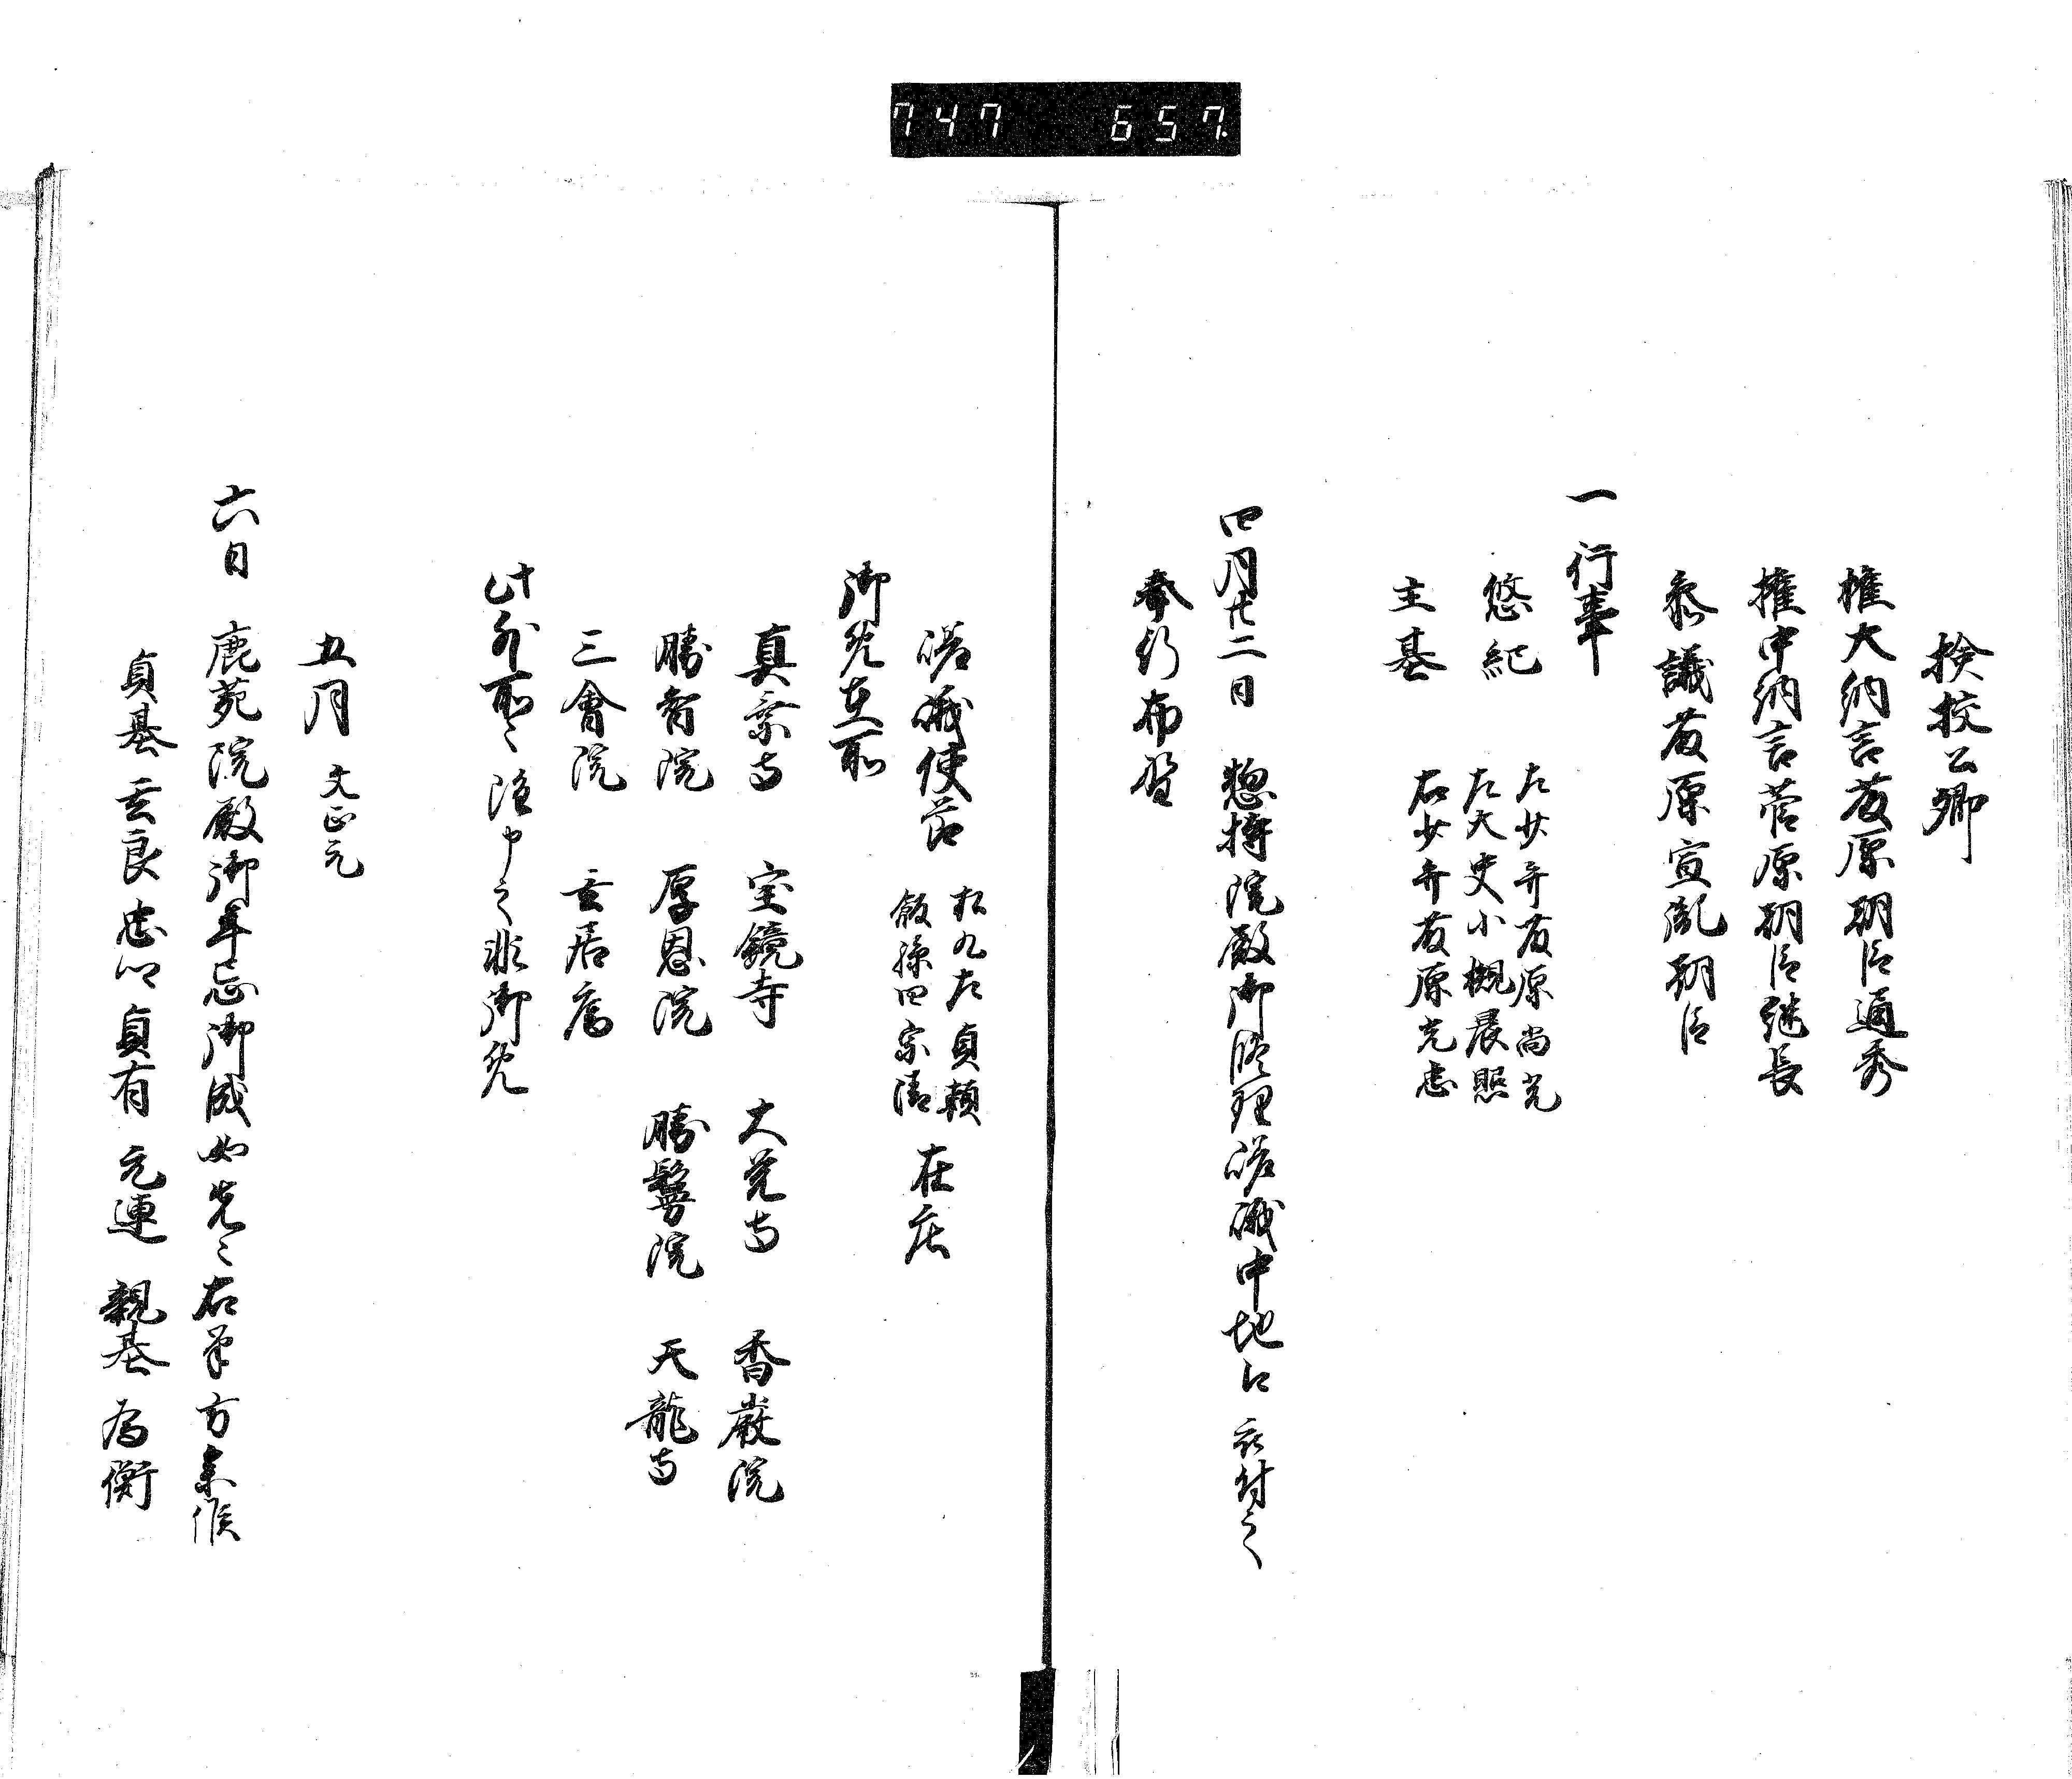 747 657
検校公卿
権大納言藤原朝臣通秀
権中納言菅原朝臣継長
参議藤原宣胤朝臣
一行事
悠紀 左少弁藤原尚光
左大史小槻晨照
主基 右少弁藤原元忠
四月廿二日 惣持院殿御修理 中地口 被付之
奉行布野
使節 松九左貞頼
飯孫四宗清 在庄
御免在所
真乗寺 宝鏡寺 大覚寺 香厳院
勝智院 厚恩院 勝鬘院 天龍寺
三會院 雲居庵
此外所々雖申之非御免
五月 文正元
六日 鹿苑院殿御年忌御成如先々右筆方参候
貞基 玄良 忠郷 貞有 元連 親基 為衡